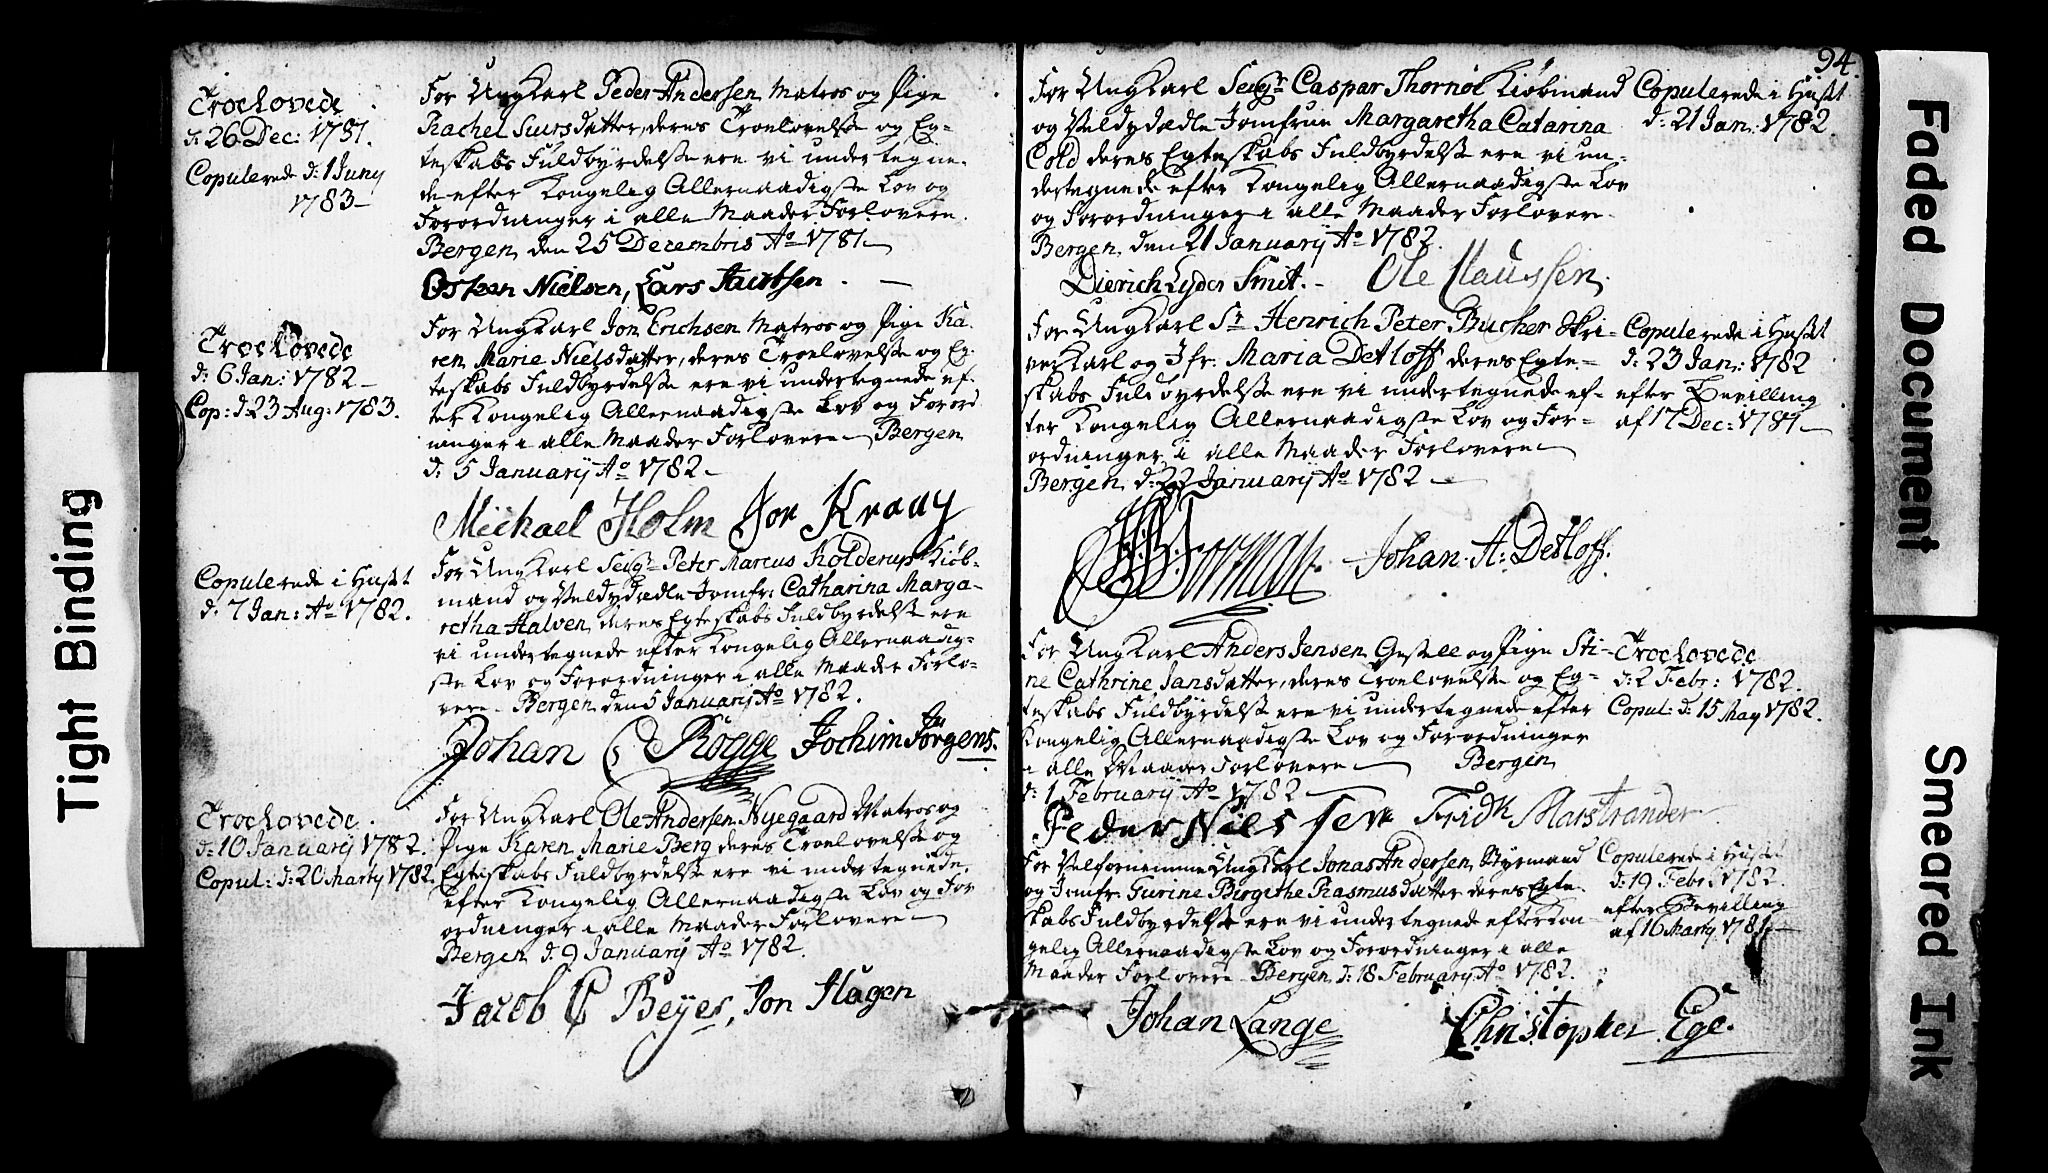 Troelovede
d: 26 Dec: 1781.
Copulerede d: 1 Juny
1783 –
For UngKarl Peder Andersen Matros og Pige
Rachel Siursdatter, deres Troelovelse og Eg=
teskabs Fuldbyrdelse ere vi undertegne=
de efter Kongelig Allernaadigste Lov og
Forordninger i alle Maader Forlovere.
Bergen den 25 Decembris Ao 1781 –
Nielsen, Lars Jacobsen. –
Troelovede
d: 6 Jan: 1782 –
Cop: d: 23 Aug: 1783.
For UngKarl Jon Erichsen Matros og Pige Ka=
ren Marie Nielsdatter, deres Troelovelse og Eg=
teskabs Fuldbyrdelse ere vi undertegnede ef=
ter Kongelig Allernaadigste Lov og Forord
ninger i alle Maader Forlovere – Bergen
d: 5 January Ao 1782 –
Michael Holm Jon Kraay
Copulerede i Huset
d: 7 Jan: Ao 1782.
For UngKarl Seigr Peter Marcus Kolderup Kiøb=
mand og Veldydædle Jomfr: Catharina Marga=
retha Halven, deres Egteskabs Fuldbyrdelse ere
vi undertegnede efter Kongelig Allernaadig=
ste Lov og Forordninger i alle Maader Forlo=
vere – Bergen den 5 January Ao 1782.
Johan C Rogge Jochim Jørgens.
Troelovede.
d: 10 January 1782.
Copul: d: 20 Marty 1782.
For UngKarl Ole Andersen Nyegaard Matros og
Pige Karen Marie Berg deres Troelovelse og
Egteskabs Fuldbyrdelse ere vi undertegnede
efter Kongelig Allernaadigste Lov og For
ordninger i alle Maader Forlovere –
Bergen d: 9 January Ao 1782.
Jacob C Beyer, Jon Hagen
94.
For UngKarl Seigr Caspar Thornøe Kiøbmand
og Veldydædle Jomfrue Margaretha Catarina
Cold deres Egteskabs Fuldbyrdelse ere vi un=
dertegnede efter Kongelig Allernaadigste Lov
og Forordninger i alle Maader Forlovere –
Bergen den 21 January Ao 1782.
Dierich Lyder Smit. – Ole Claussen.
Copulerede i Huset
d: 21 Jan: 1782.
For UngKarl Sr Henrich Peter Bucher Skri=
verKarl og Jfr: Maria Detloff deres Egte=
skabs Fuldbyrdelse ere vi undertegnede ef=
ter Kongelig Allernaadigste Lov og For=
ordninger i alle Maader Forlovere –
Bergen d: 22 January Ao 1782 –
Dorman. Johan. A: Detloff.
Copulerede i Huset
d: 23 Jan: 1782
efter Bevilling
af 17 Dec: 1781 –
For UngKarl Anders Jensen Geselle og Pige Sti=
ne Cathrine Jansdatter, deres Troelovelse og Eg=
teskabs Fuldbyrdelse ere vi undertegnede efter
Kongelig Allernaadigste Lov og Forordninger
i alle Maader Forlovere – Bergen
d: 1 February Ao 1782 –
Peder Nielssen Fridk Marstrander
Troelovede
d: 2 Febr: 1782.
Copul: d: 15 May 1782.
For Velfornemme UngKarl Jonas Andersen, Styrmand
og Jomfr: Gurine Birgithe Rasmusdatter deres Egte=
skabs Fuldbyrdelse ere vi undertegnede efter Kon=
gelig Allernaadigste Lov og Forordninger i alle
Maader Forlovere – Bergen d: 18 February Ao 1782.
Johan Lange Christopher Ege.
Copulerede i Huset
d: 19 Febr: 1782.
efter Bevilling
af 16 Marty 1781 –
Tight Binding
Faded Document
Smeared Ink